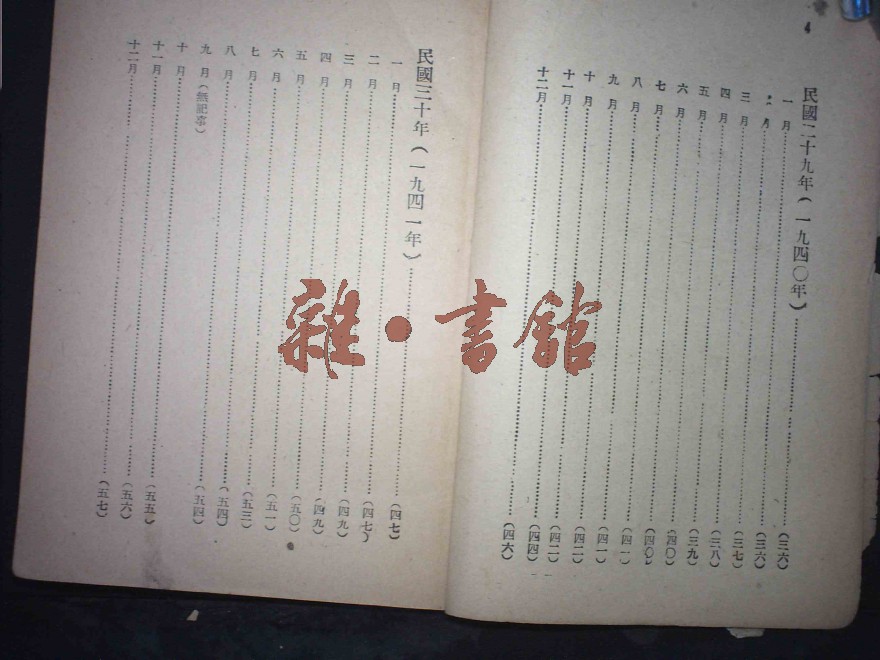 4
民國二十九年(一九四〇年)……(三六)
一月……(三六)
二月……(三七)
三月……(三八)
四月……(三九)
五月……(四〇)
六月……(四〇)
七月……(四一)
八月……(四一)
九月……(四二)
十月……(四二)
十一月……(四四)
十二月……(四六)
民國三十年(一九四一年)……(四七)
一月……(四七)
二月……(四九)
三月……(四九)
四月……(五〇)
五月……(五一)
六月……(五三)
七月……(五四)
八月……(五四)
九月(無記事)
十月……(五五)
十一月……(五六)
十二月……(五七)
雜·書館